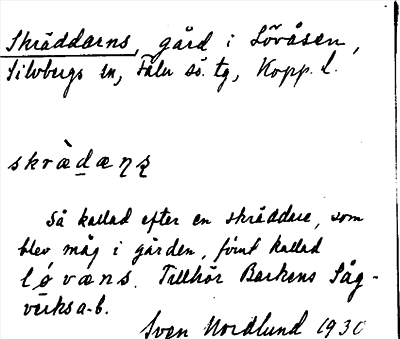 Skräddarns, gård i Lövåsen,
Silvbergs sn, Falu sö. tg, Kopp. l.
skràdæṇṣ
Så kallad efter en skräddare, som
blev måg i gården, förut kallad
lø̀væns. Tillhör Barkens Såg-
verks a-b.
Sven Nordlund 1930